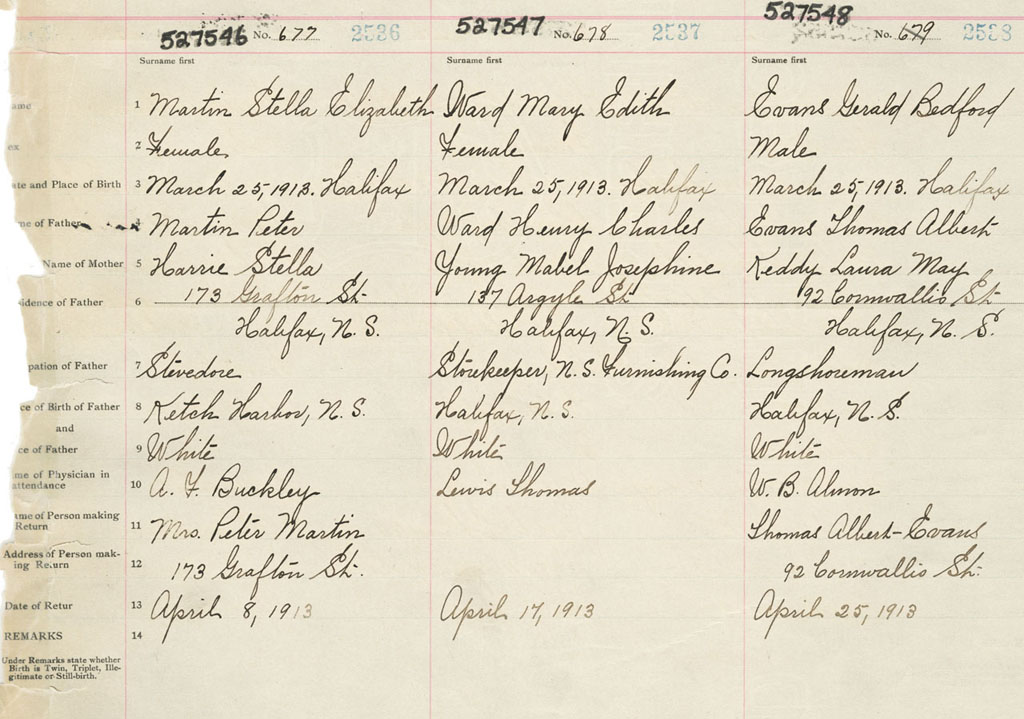 527546 No. 677 2536 527547 No. 678 2537 527548 No. 679 2538
Surname first Surname first Surname first
ame 1 Martin Stella Elizabeth Ward Mary Edith Evans Gerald Bedford
ex 2 Female Female Male
ate and Place of Birth 3 March 25, 1913. Halifax March 25, 1913. Halifax March 25, 1913. Halifax
me of Father 4 Martin Peter Ward Henry Charles Evans Thomas Albert
Name of Mother 5 Harrie Stella Young Mabel Josephine Keddy Laura May
idence of Father 6 173 Grafton St. 137 Argyle St 92 Cornwallis St.
Halifax, N. S. Halifax, N. S. Halifax, N. S.
pation of Father 7 Stevedore Storekeeper, N. S. Furnishing Co. Longshoreman
ce of Birth of Father 8 Ketch Harbor, N. S. Halifax, N. S. Halifax, N. S.
and
ce of Father 9 White White White
me of Physician in
attendance 10 A. F. Buckley Lewis Thomas W. B. Almon
ame of Person making
Return 11 Mrs. Peter Martin Thomas Albert Evans
Address of Person mak-
ing Return 12 173 Grafton St. 92 Cornwallis St.
Date of Retur 13 April 8, 1913 April 17, 1913 April 25, 1913
REMARKS 14
Under Remarks state whether
Birth is Twin, Triplet, Ille-
gitimate or Still-birth.